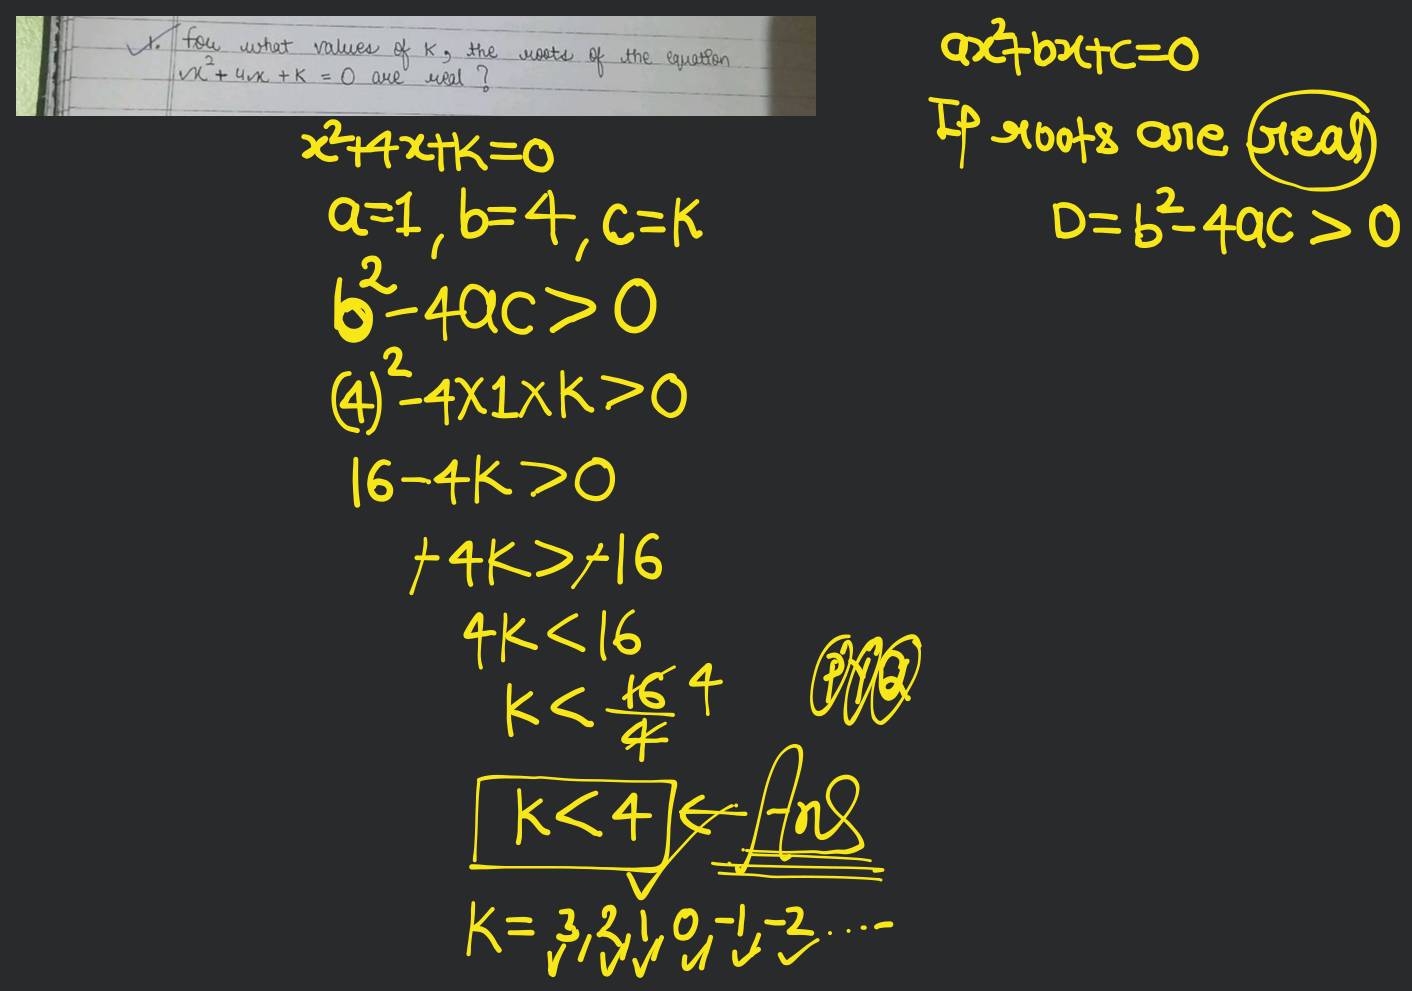 1. for what values of K, the roots of the equation
x² + 4x + K = 0 are real ?
ax²+bx+c=0
If roots are real
D=b²-4ac>0
x²+4x+K=0
a=1, b=4, c=K
b²-4ac>0
(4)²-4×1×K>0
16-4K>0
-4K>-16
4K<16
K<16/4 4
PYQ
K<4 ← Ans
K=3,2,1,0,-1,-2.....